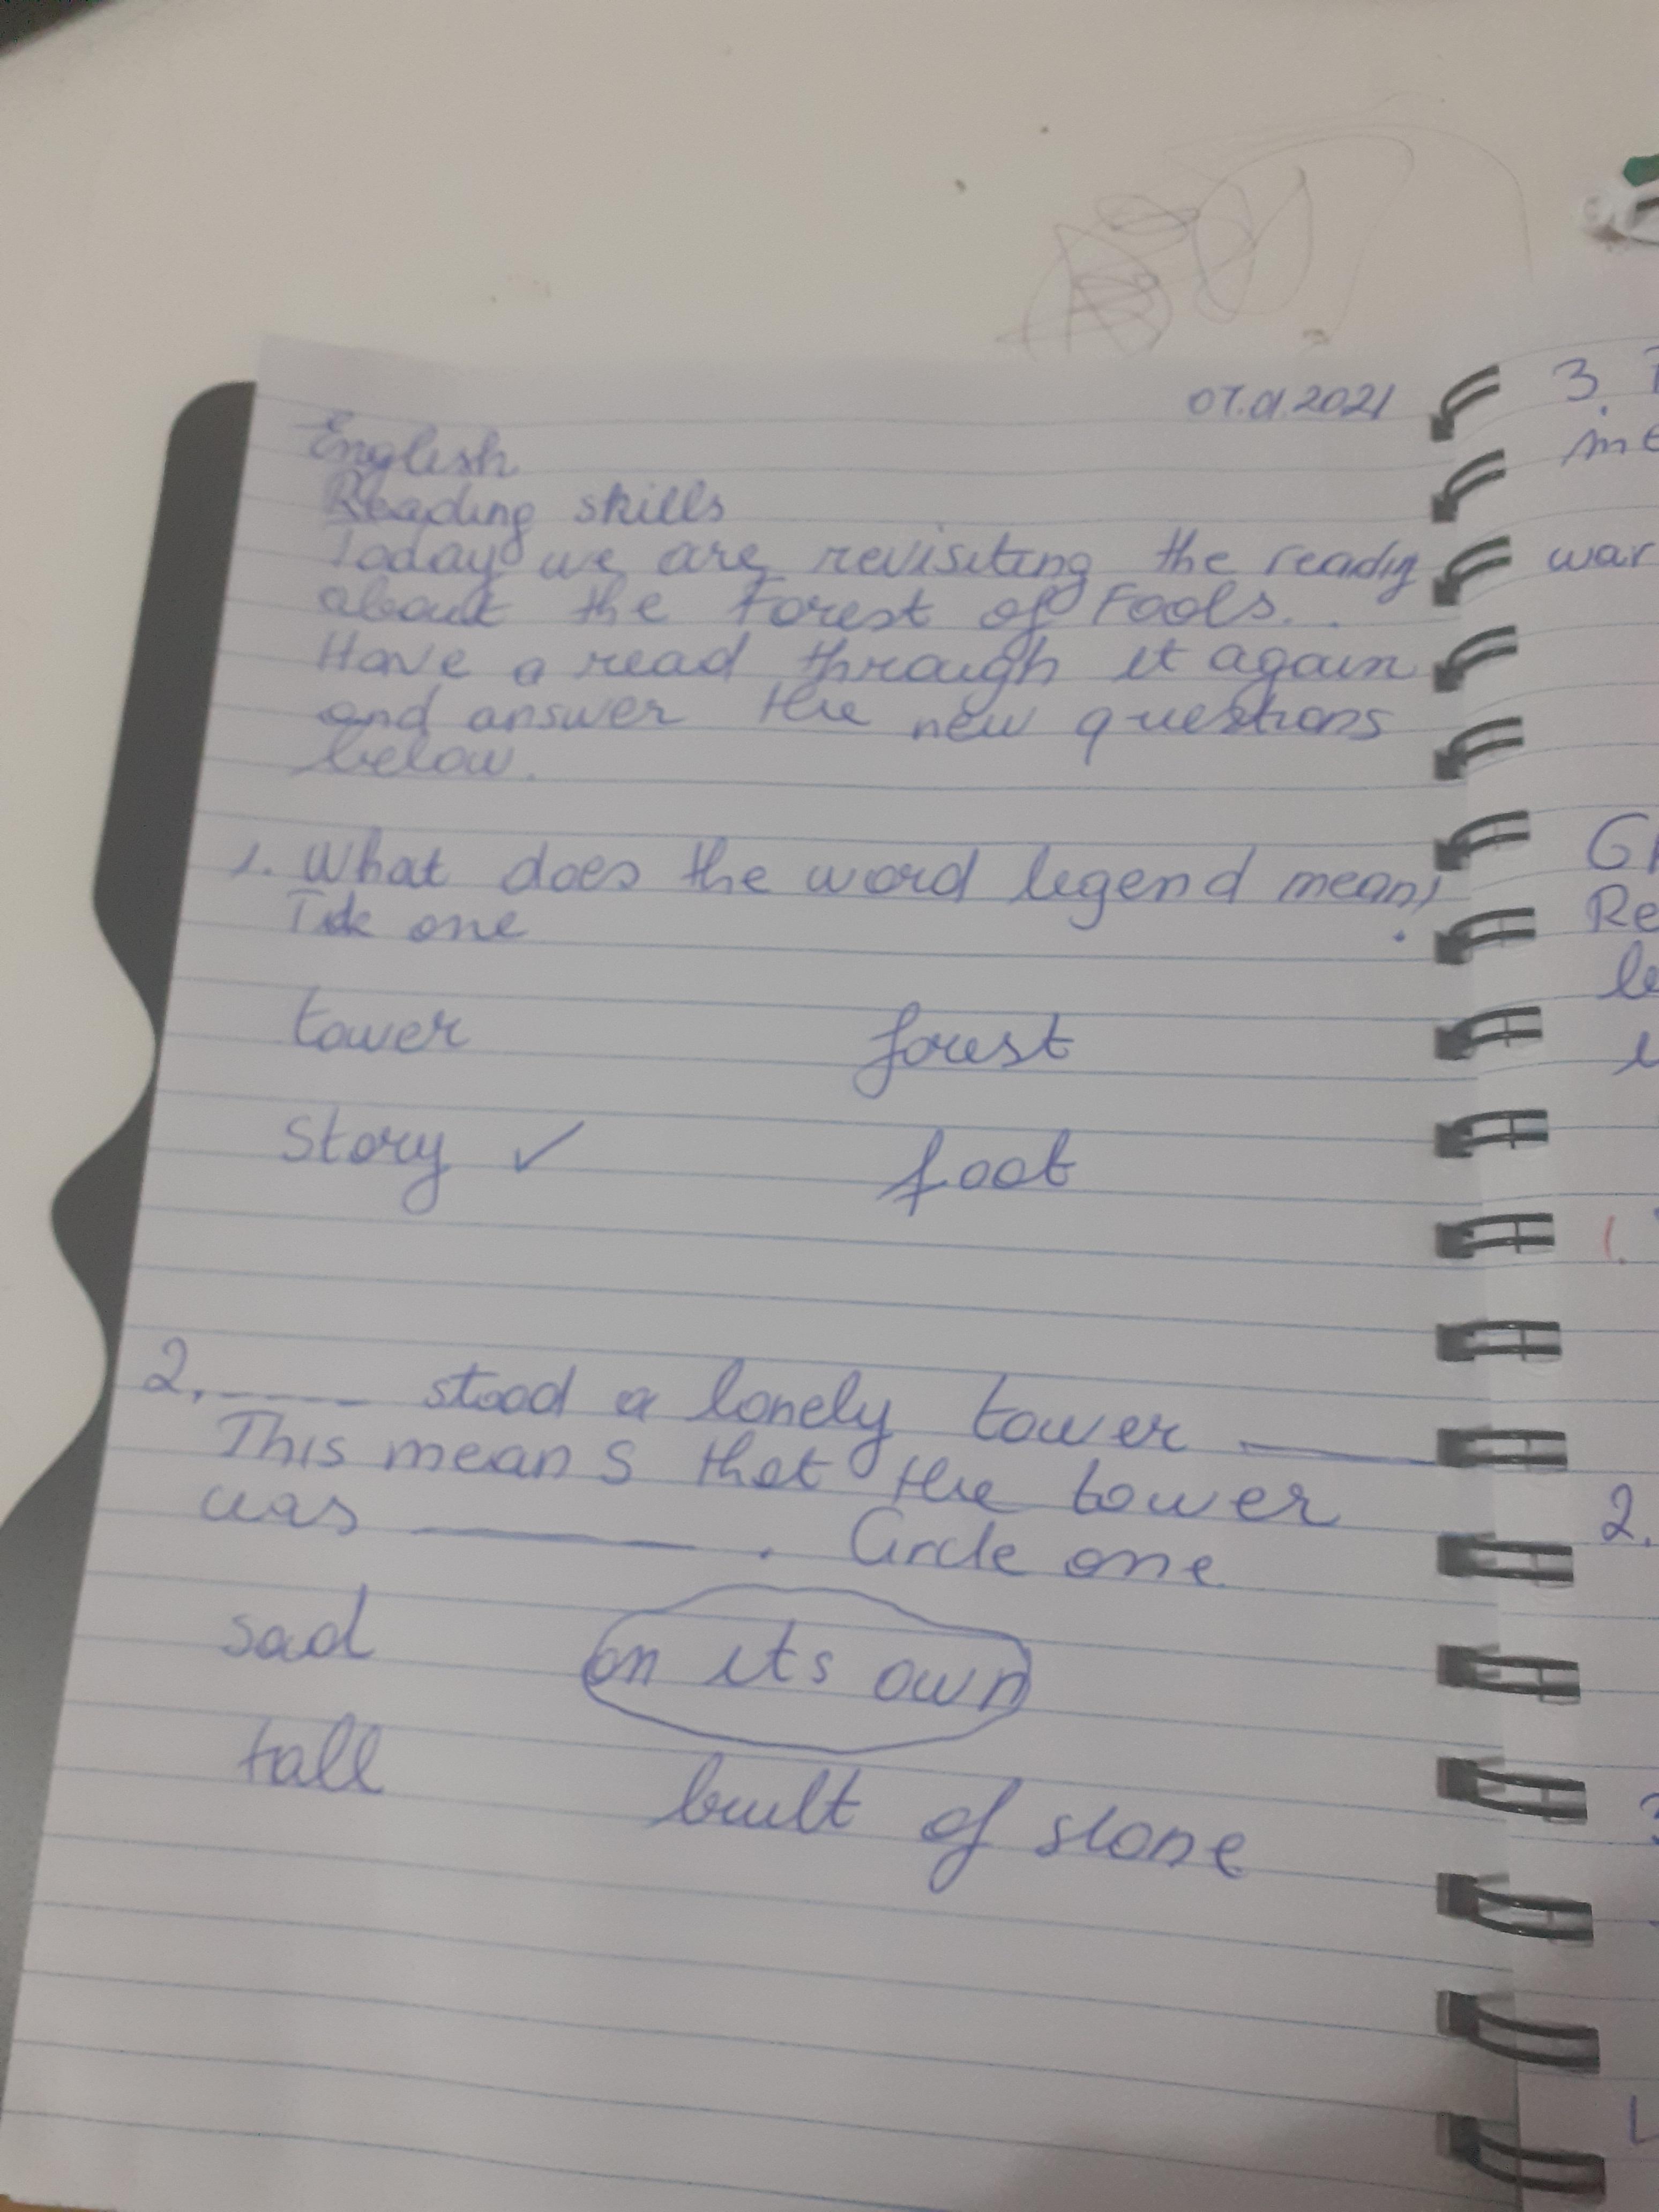 07.01.2021
English
Reading skills
Today we are revisiting the readig
about the Forest of Fools..
Have a read through it again
and answer the new questions
below.
1. What does the word legend mean?
Tick one
tower forest
story ✓ foot
2. ____ stood a lonely tower ____
This means that the tower
was ____. Circle one
sad on its own
tall built of stone
3.
war
Re
le
1.
2.